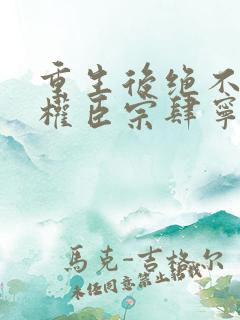 重生後绝不
權臣宗肆寧
馬克-吉格尔
未经同意禁止转载